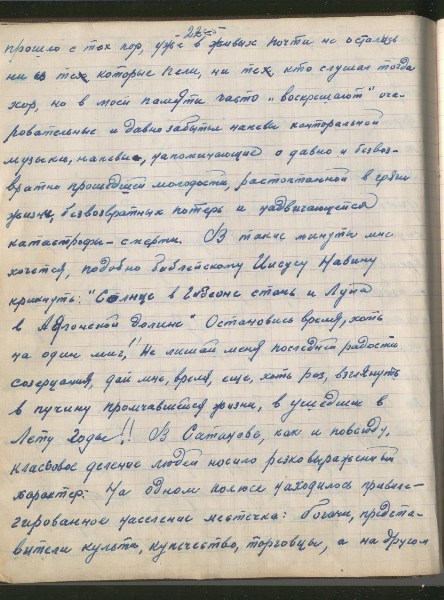 -22-
прошло с тех пор, уже в живых почти не остались
ни из тех которые пели, ни тех, кто слушал тогда
хор, но в моей памяти часто "воскрешают" оча-
ровательные и давно забытые напевы канторальной
музыки, напевы, напоминающие о давно и безвоз-
вратно прошедшей молодости, растоптанной в грязи
жизни, безвозвратных потерь и надвигающейся
катастрофы - смерти. В такие минуты мне
хочется, подобно библейскому Иисусу Навину
крикнуть: "Солнце в Гибеоне стань и Луна
в Аялонской долине" Остановись время, хоть
на один миг,! Не лишай меня последней радости
созерцания, дай мне, время, еще, хоть раз, взглянуть
в пучину промчавшейся жизни, в ушедшие в
Лету годы!! В Сатаново, как и повсюду,
классовое деление людей носило резко выраженный
характер: На одном полюсе находилось привиле-
гированное население местечка: богачи, предста-
вители культа, купечество, торговцы, а на другом